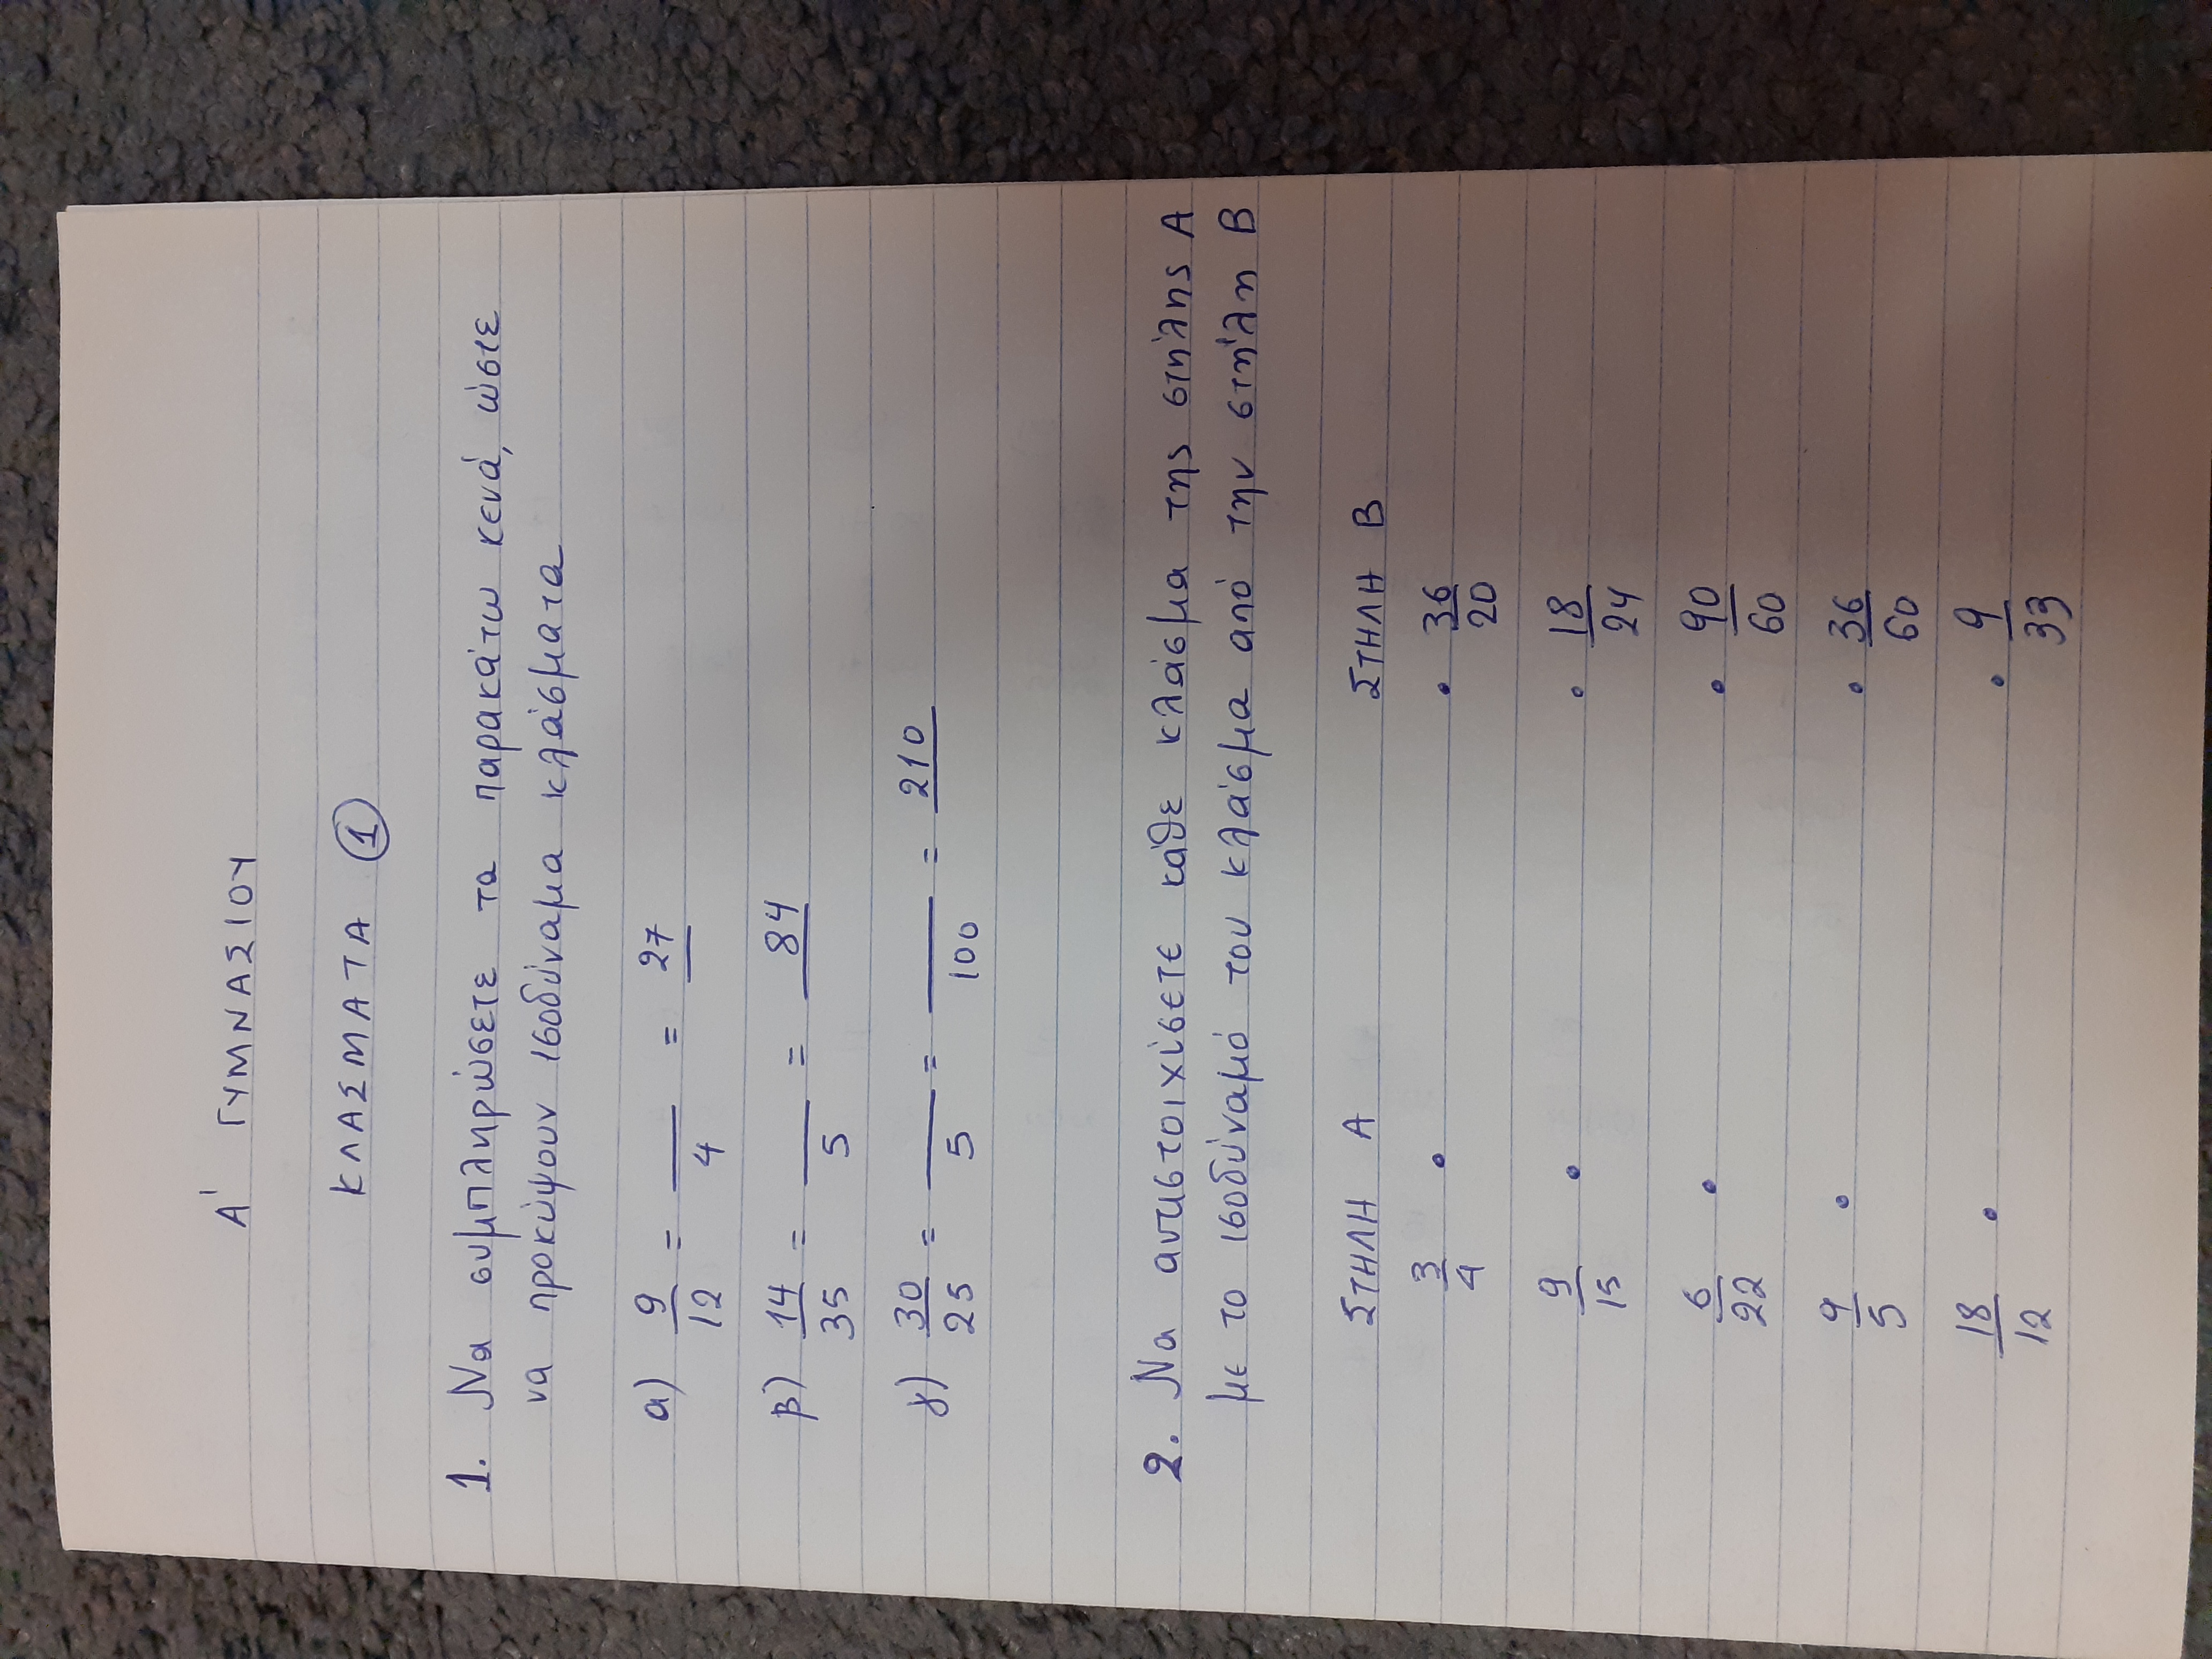 Α' ΓΥΜΝΑΣΙΟΥ
ΚΛΑΣΜΑΤΑ ①
1. Να συμπληρώσετε τα παρακάτω κενά, ώστε
να προκύψουν ισοδύναμα κλάσματα
α) 9/12 = __/4 = 27/__
β) 14/35 = __/5 = 84/__
γ) 30/25 = __/5 = __/100 = 210/__
2. Να αντιστοιχίσετε κάθε κλάσμα της στήλης Α
με το ισοδύναμό του κλάσμα από την στήλη Β
ΣΤΗΛΗ Α ΣΤΗΛΗ Β
3/4 • • 36/20
9/15 • • 18/24
6/22 • • 90/60
9/5 • • 36/60
18/12 • • 9/33